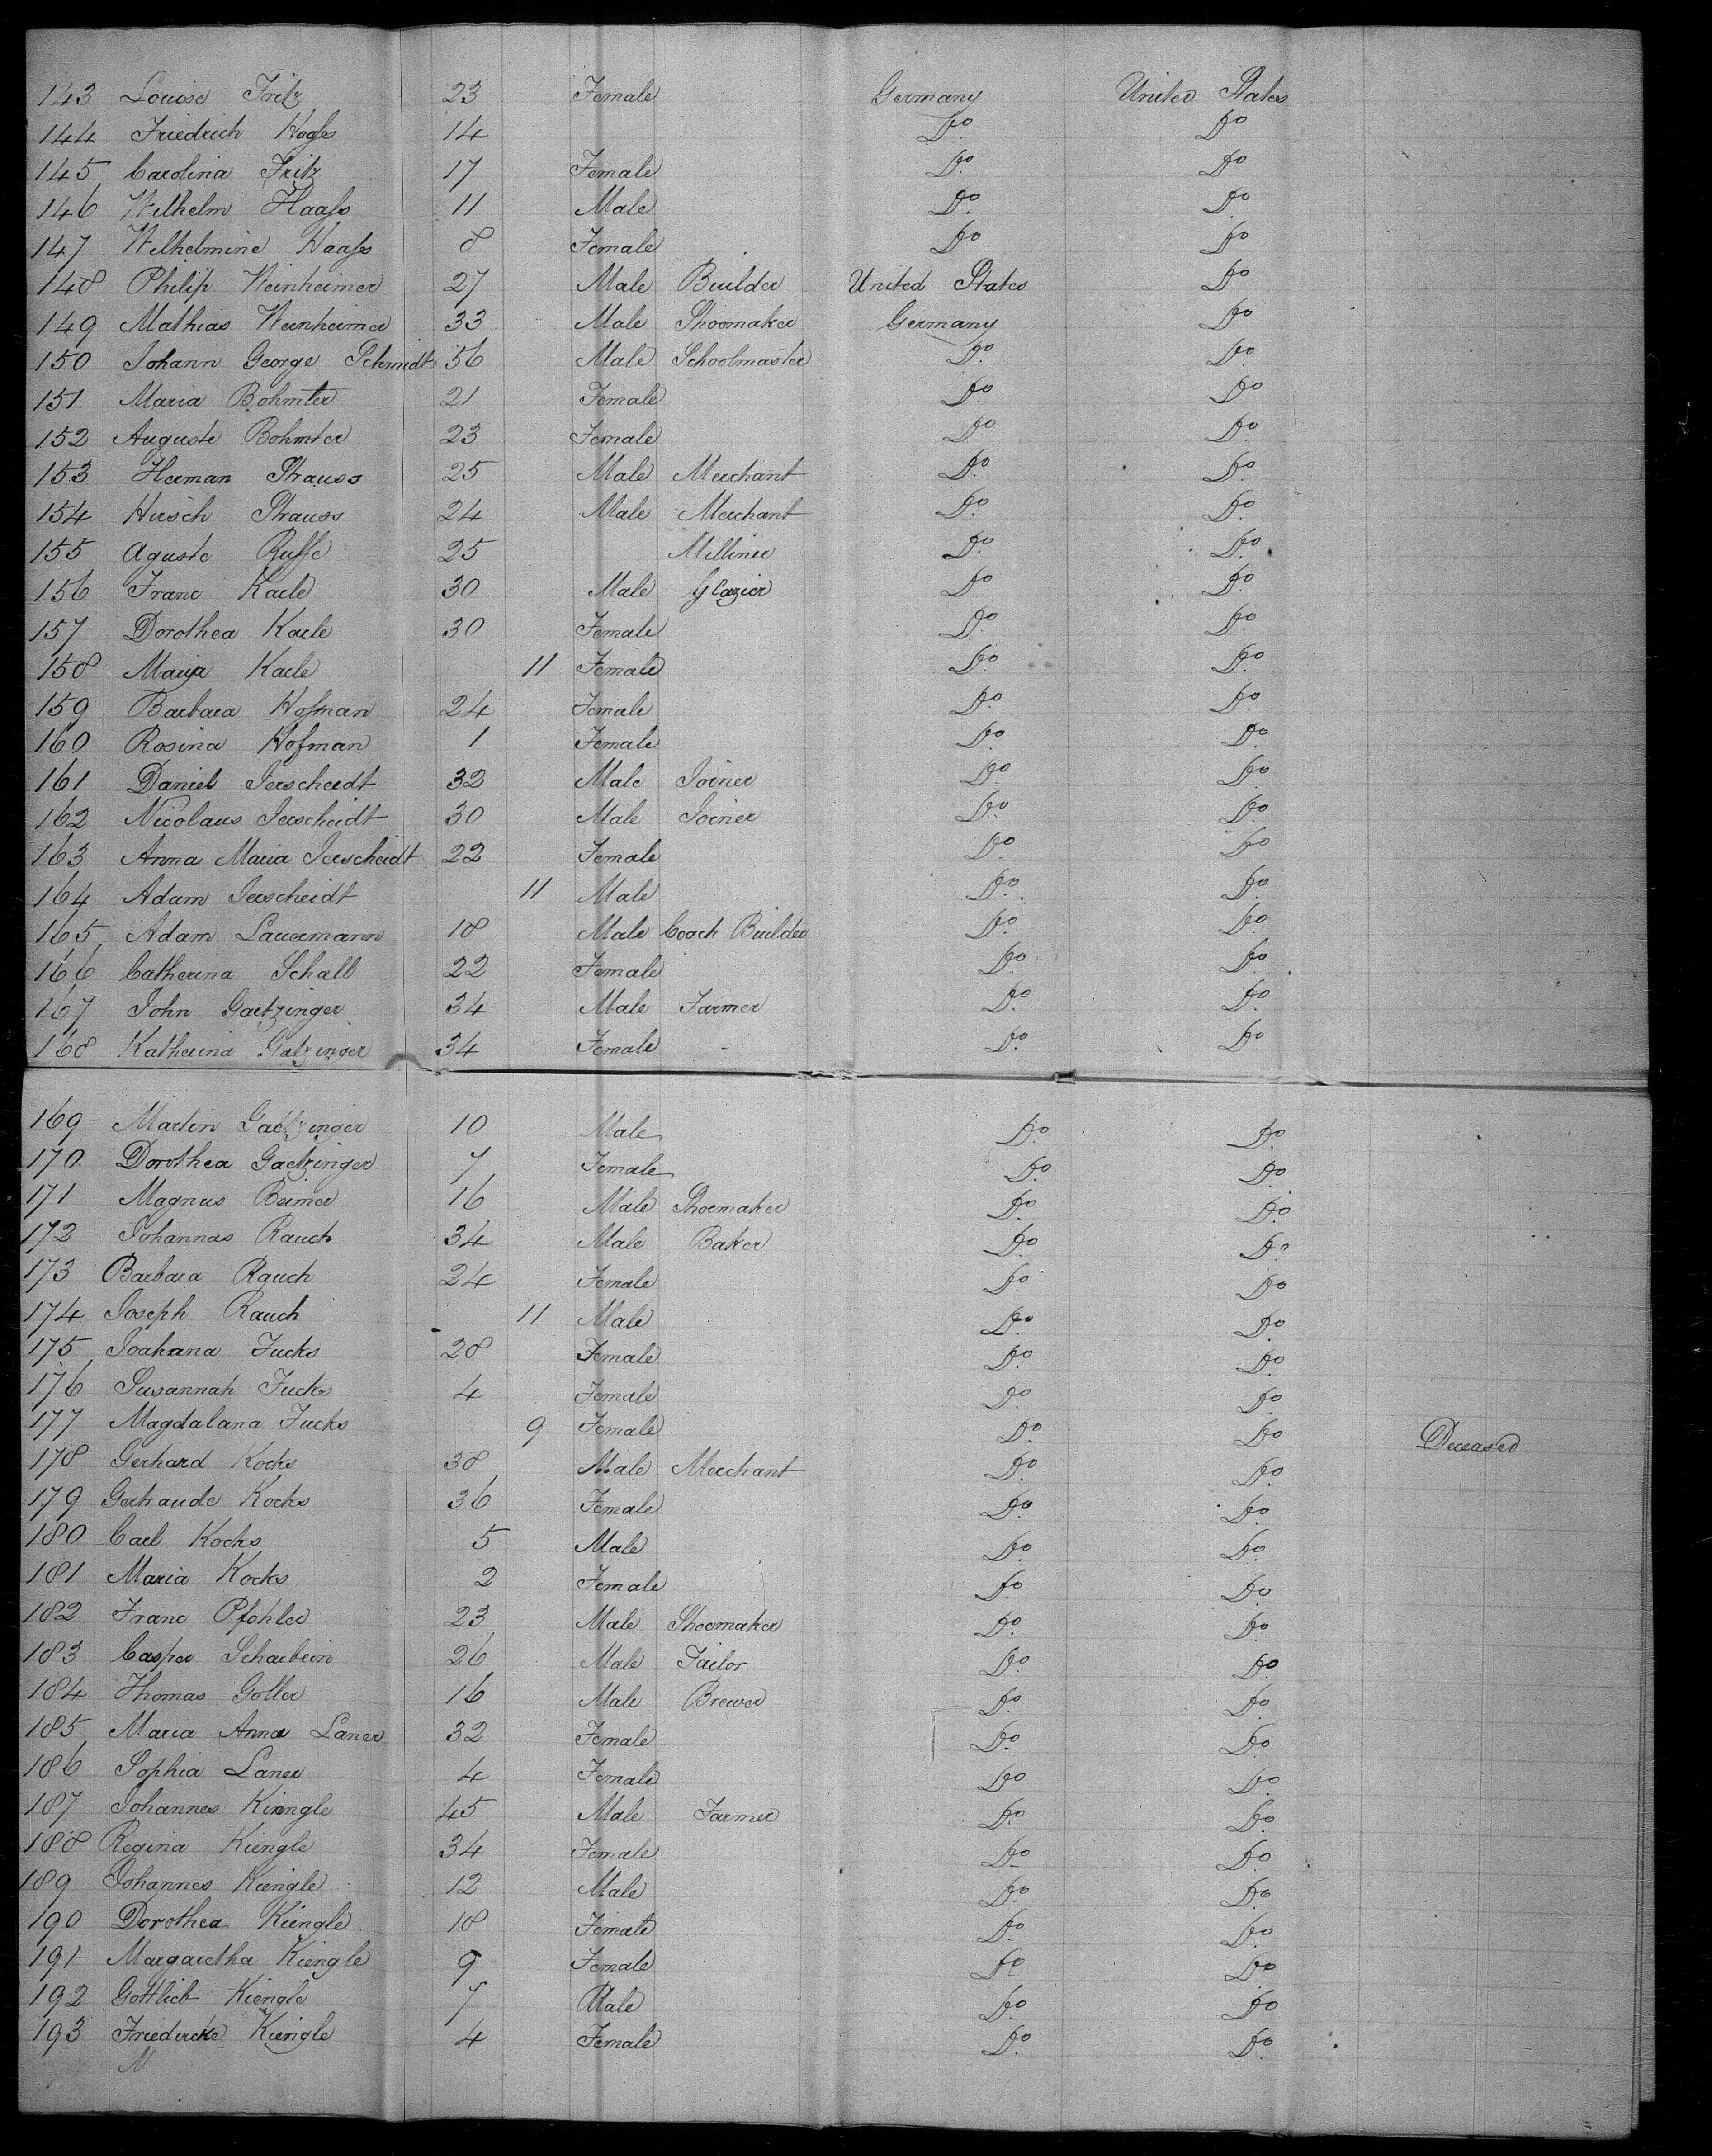 143 Louise Fritz 23 Female Germany United States
144 Friedrich Haass 14 Do Do
145 Carolina Fritz 17 Female Do Do
146 Wilhelm Haass 11 Male Do Do
147 Wilhelmine Haass 8 Female Do Do
148 Philip Weinheimer 27 Male Builder United States Do
149 Mathias Weinheimer 33 Male Shoemaker Germany Do
150 Johann George Schmidt 56 Male Schoolmaster Do Do
151 Maria Bohmter 21 Female Do Do
152 Auguste Bohmter 23 Female Do Do
153 Herman Strauss 25 Male Merchant Do Do
154 Hirsch Strauss 24 Male Merchant Do Do
155 Aguste Ruffe 25 Milliner Do Do
156 Franc Karle 30 Male Glazier Do Do
157 Dorothea Karle 30 Female Do Do
158 Maria Karle 11 Female Do Do
159 Barbara Hofman 24 Female Do Do
160 Rosina Hofman 1 Female Do Do
161 Daniel Jerscheidt 32 Male Joiner Do Do
162 Nicolaus Jerscheidt 30 Male Joiner Do Do
163 Anna Maria Jerscheidt 22 Female Do Do
164 Adam Jerscheidt 11 Male Do Do
165 Adam Lauermann 18 Male Coach Builder Do Do
166 Catherina Schall 22 Female Do Do
167 John Gaetzinger 34 Male Farmer Do Do
168 Katherina Gatzinger 34 Female Do Do
169 Martin Gaetzinger 10 Male Do Do
170 Dorothea Gaetzinger 7 Female Do Do
171 Magnus Beimer 16 Male Shoemaker Do Do
172 Johannas Rauch 34 Male Baker Do Do
173 Barbara Rauch 24 Female Do Do
174 Joseph Rauch 11 Male Do Do
175 Joahana Fucks 28 Female Do Do
176 Susannah Fucks 4 Female Do Do
177 Magdalana Fucks 9 Female Do Do Deceased
178 Gerhard Kocks 38 Male Merchant Do Do
179 Gertraude Kocks 36 Female Do Do
180 Carl Kocks 5 Male Do Do
181 Maria Kocks 2 Female Do Do
182 Franc Pfohler 23 Male Shoemaker Do Do
183 Casper Scharbein 26 Male Tailor Do Do
184 Thomas Goller 16 Male Brewer Do Do
185 Maria Anna Laner 32 Female Do Do
186 Sophia Laner 4 Female Do Do
187 Johannes Kiengle 45 Male Farmer Do Do
188 Regina Kiengle 34 Female Do Do
189 Johannes Kiengle 12 Male Do Do
190 Dorothea Kiengle 18 Female Do Do
191 Margaretha Kiengle 9 Female Do Do
192 Gottlieb Kiengle 7 Male Do Do
193 Friedircke Kiengle 4 Female Do Do
M